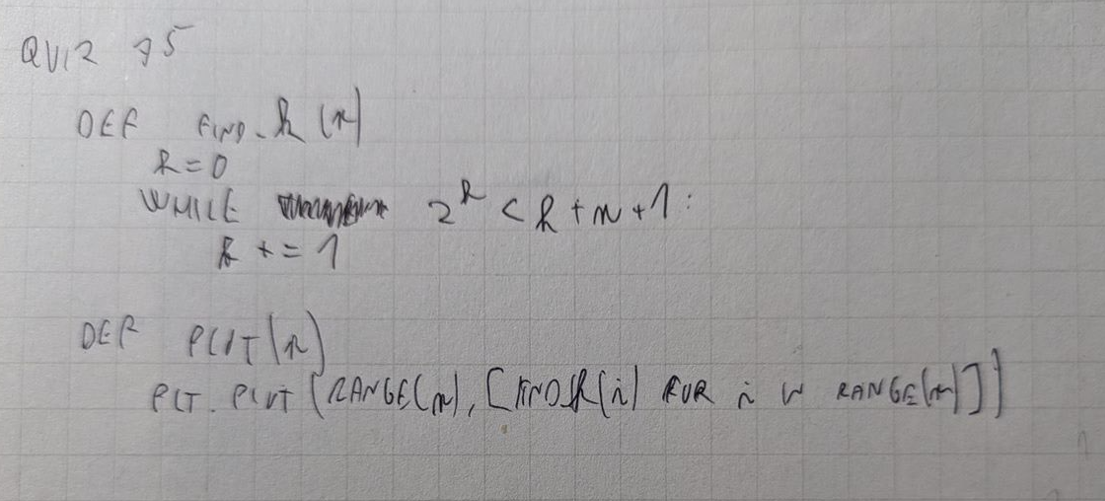 QUIZ 75
DEF FIND_k (n)
k=0
WHILE 2^k < k+n+1:
k += 1
DEF PLOT(n)
PLT.PLOT(RANGE(n), [FINDk(i) FOR i IN RANGE(n)])